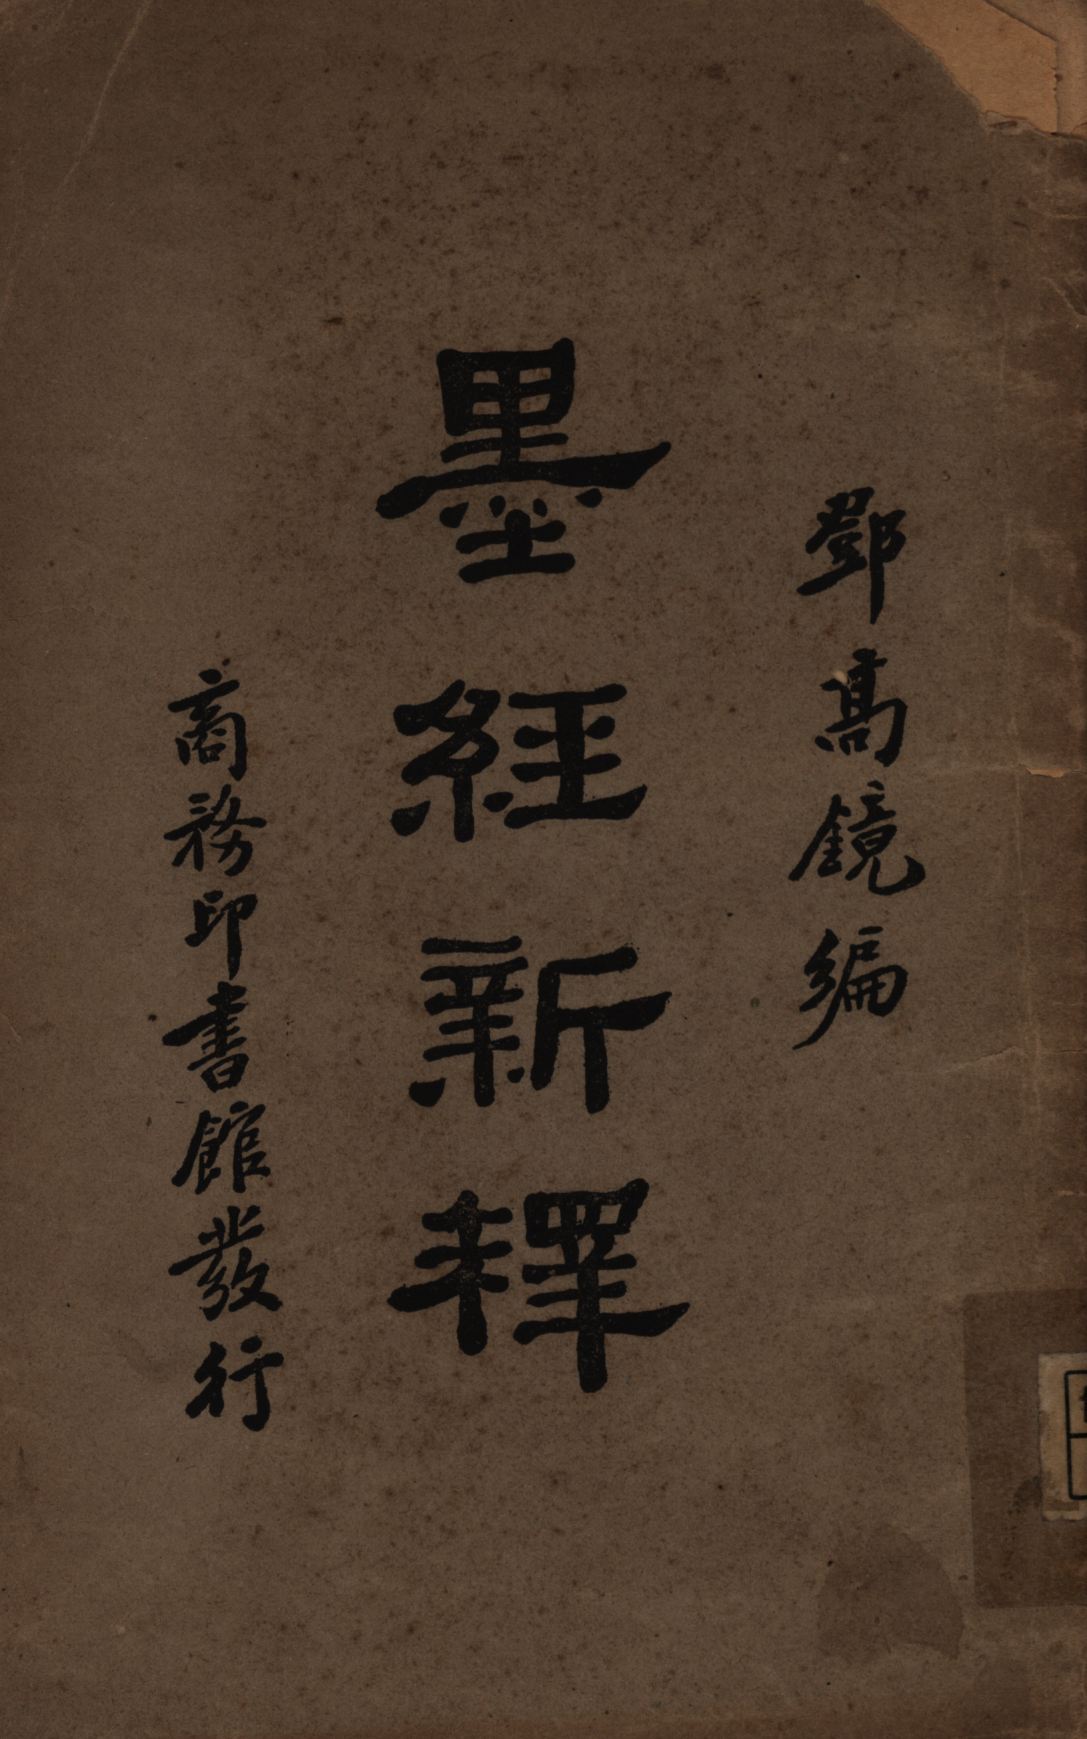 鄧高鏡編
墨經新釋
商務印書館發行